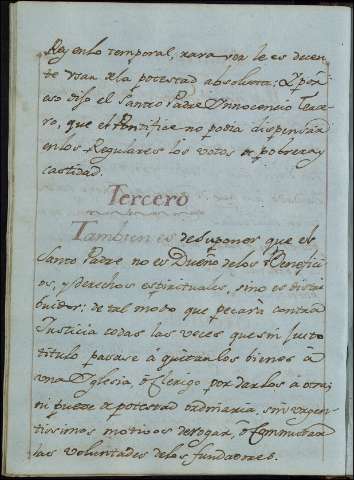 Rey en lo temporal, rara vez le es decen-
te usar de la potestad absoluta: Y por
eso dijo el Santo Padre Innocencio Terce-
ro, que el Pontifice no podia dispensar
en los Regulares los votos de pobreza y
castidad.
Tercero
Tambien es de suponer que el
Santo Padre no es Dueño de los Benefici-
os, y derechos espirituales, sino es distri-
buidor: de tal modo que pecará contra
Justicia todas las veces que sin justo
titulo pasase a quitar los bienes á
una Yglesia, ó Clerigo por darlos á otra;
ni puede de potestad ordinaria, sin urgen-
tissimos motivos derogar, ó Commutar
las voluntades de los fundadores.